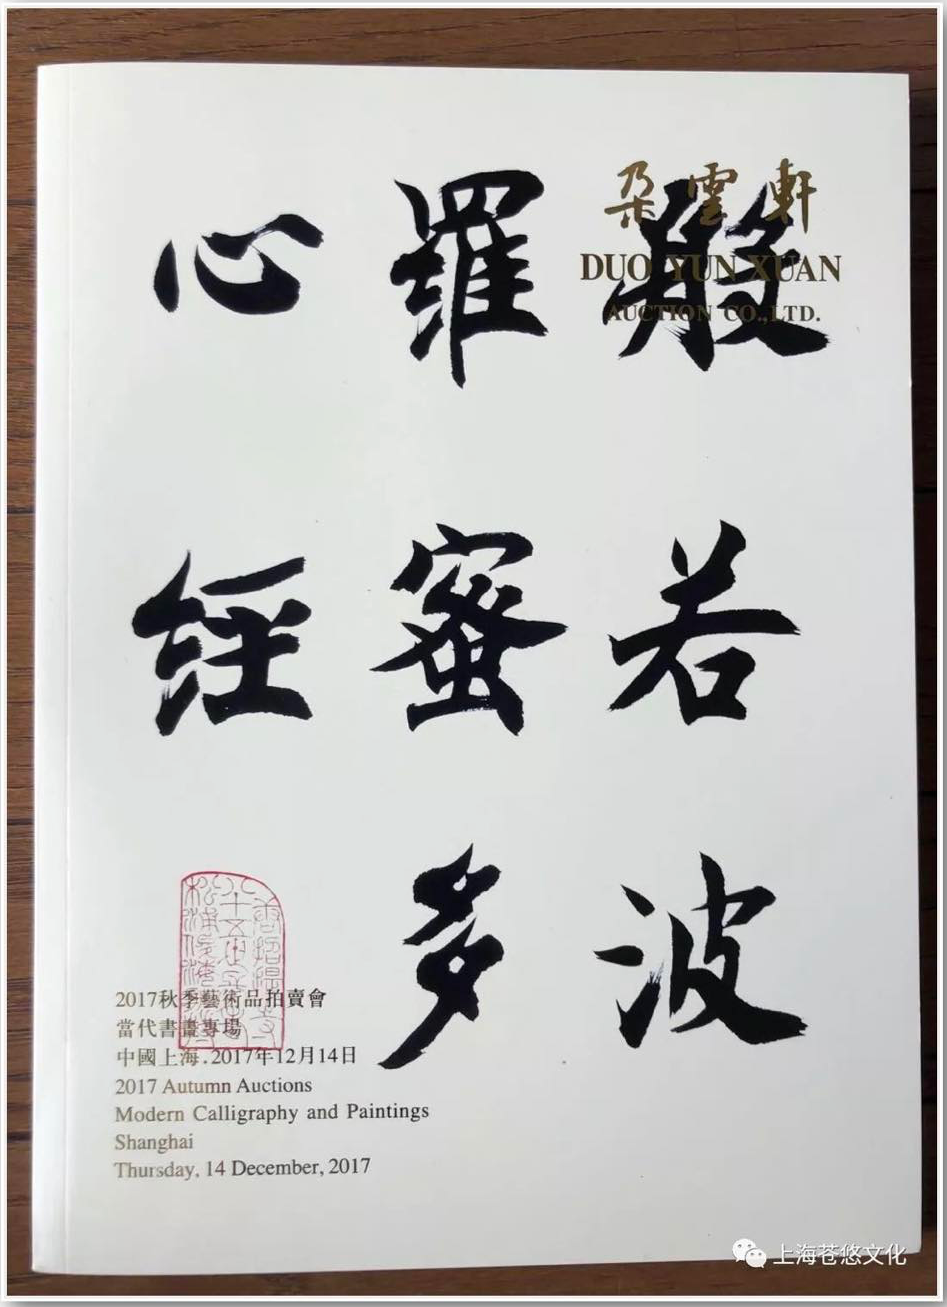 朵雲軒
DUO YUN XUAN
AUCTION CO.,LTD.
般若波
羅蜜多
心經
2017秋季藝術品拍賣會
當代書畫專場
中國上海.2017年12月14日
2017 Autumn Auctions
Modern Calligraphy and Paintings
Shanghai
Thursday, 14 December, 2017
上海苍悠文化